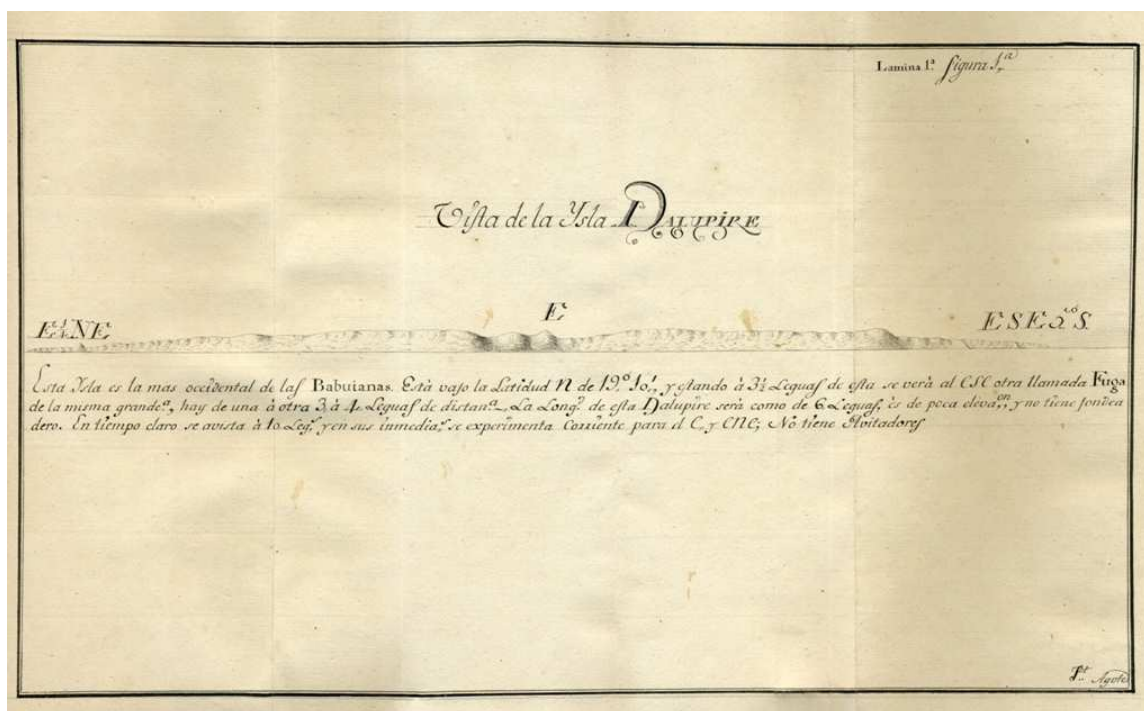 Lamina 1ª figura 1ª
Vista de la Ysla DALUPIRE
E¼NE E ESE5ºS.
Esta Ysla es la mas occidental de las Babuianas. Està vajo la Latidud N de 19º 10', y estando à 3½ Leguas de esta se verà al ESE otra llamada Fuga
de la misma grandeª, hay de una à otra 3, à 4 Leguas de distanª. La Longª de esta Dalupire serà como de 6 Leguas, ès de poca elevaºⁿ, y no tiene fondea
dero. En tiempo claro se avista à 10 Legª y en sus inmediaª se experimenta Corriente para el E, y ENE; No tiene Avitadores
Agote